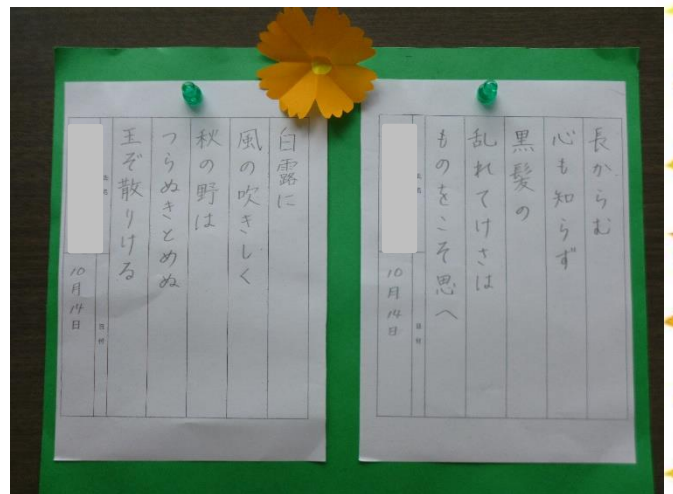 長からむ
心も知らず
黒髪の
乱れてけさは
ものをこそ思へ
氏名
日付
10月14日
白露に
風の吹きしく
秋の野は
つらぬきとめぬ
玉ぞ散りける
氏名
日付
10月14日